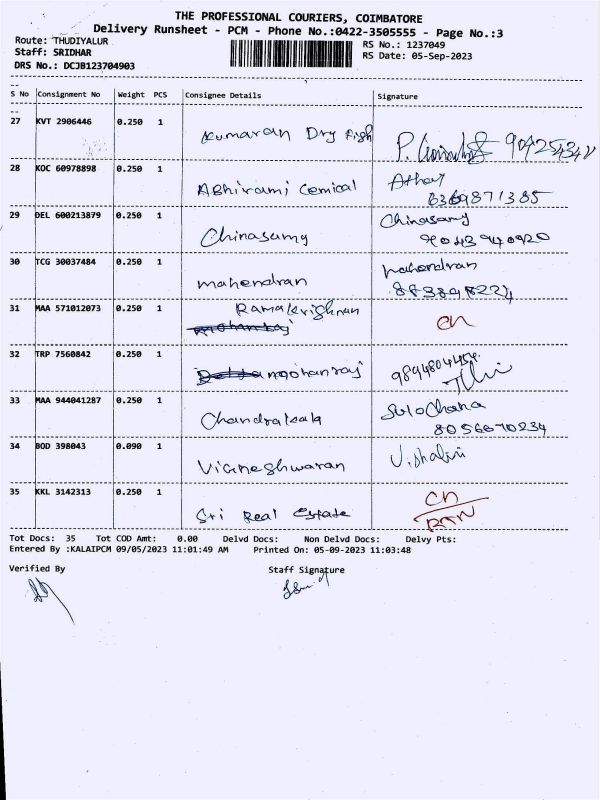 THE PROFESSIONAL COURIERS, COIMBATORE
Delivery Runsheet - PCM - Phone No.:0422-3505555 - Page No.:3
Route: THUDIYALUR
RS No.: 1237049
Staff: SRIDHAR
RS Date: 05-Sep-2023
DRS No.: DCJB123704903
S No Consignment No Weight PCS Consignee Details Signature
27 KVT 2906446 0.250 1 Kumaran Dry Fish
28 KOC 60978898 0.250 1 Abhirami Cemical
6369871385
29 DEL 600213879 0.250 1 Chinasamy Chinasamy
9043940920
30 TCG 30037484 0.250 1 mahendran mahendran
31 MAA 571012073 0.250 1 Ramakrishnan CN
32 TRP 7560842 0.250 1 mohanraj
33 MAA 944041287 0.250 1 Chandrakala Sulochana
8056670234
34 BOD 398043 0.090 1 Vigneshwaran V. Shalini
35 KKL 3142313 0.250 1 Sri Real Estate CN
RTN
Tot Docs: 35 Tot COD Amt: 0.00 Delvd Docs: Non Delvd Docs: Delvy Pts:
Entered By :KALAIPCM 09/05/2023 11:01:49 AM Printed On: 05-09-2023 11:03:48
Verified By Staff Signature